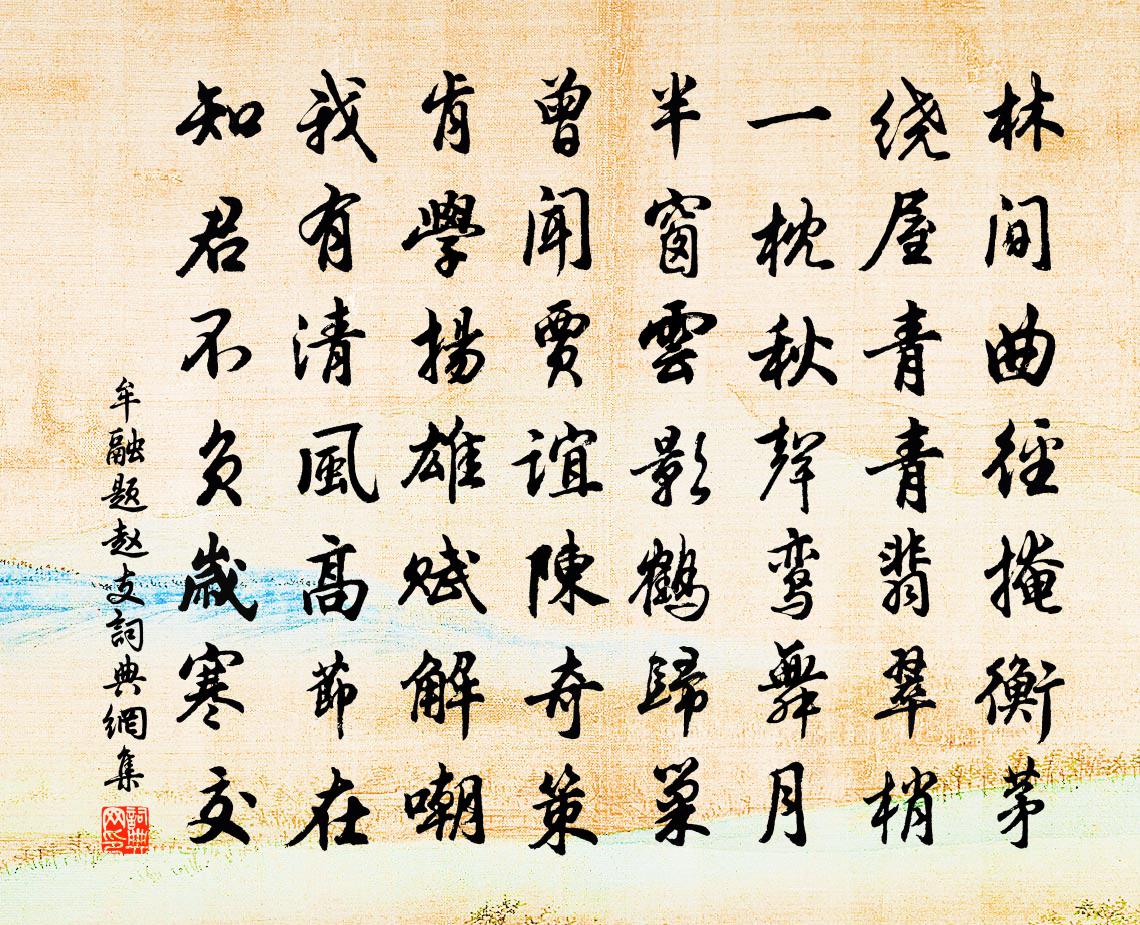 林间曲径掩衡茅
绕屋青青翡翠梢
一枕秋声鸾舞月
半窗雲影鹤歸巢
曾闻贾谊陳奇策
肯學揚雄赋解嘲
我有清風高節在
知君不负歲寒交
牟融题赵支詞典網集
詞典网印